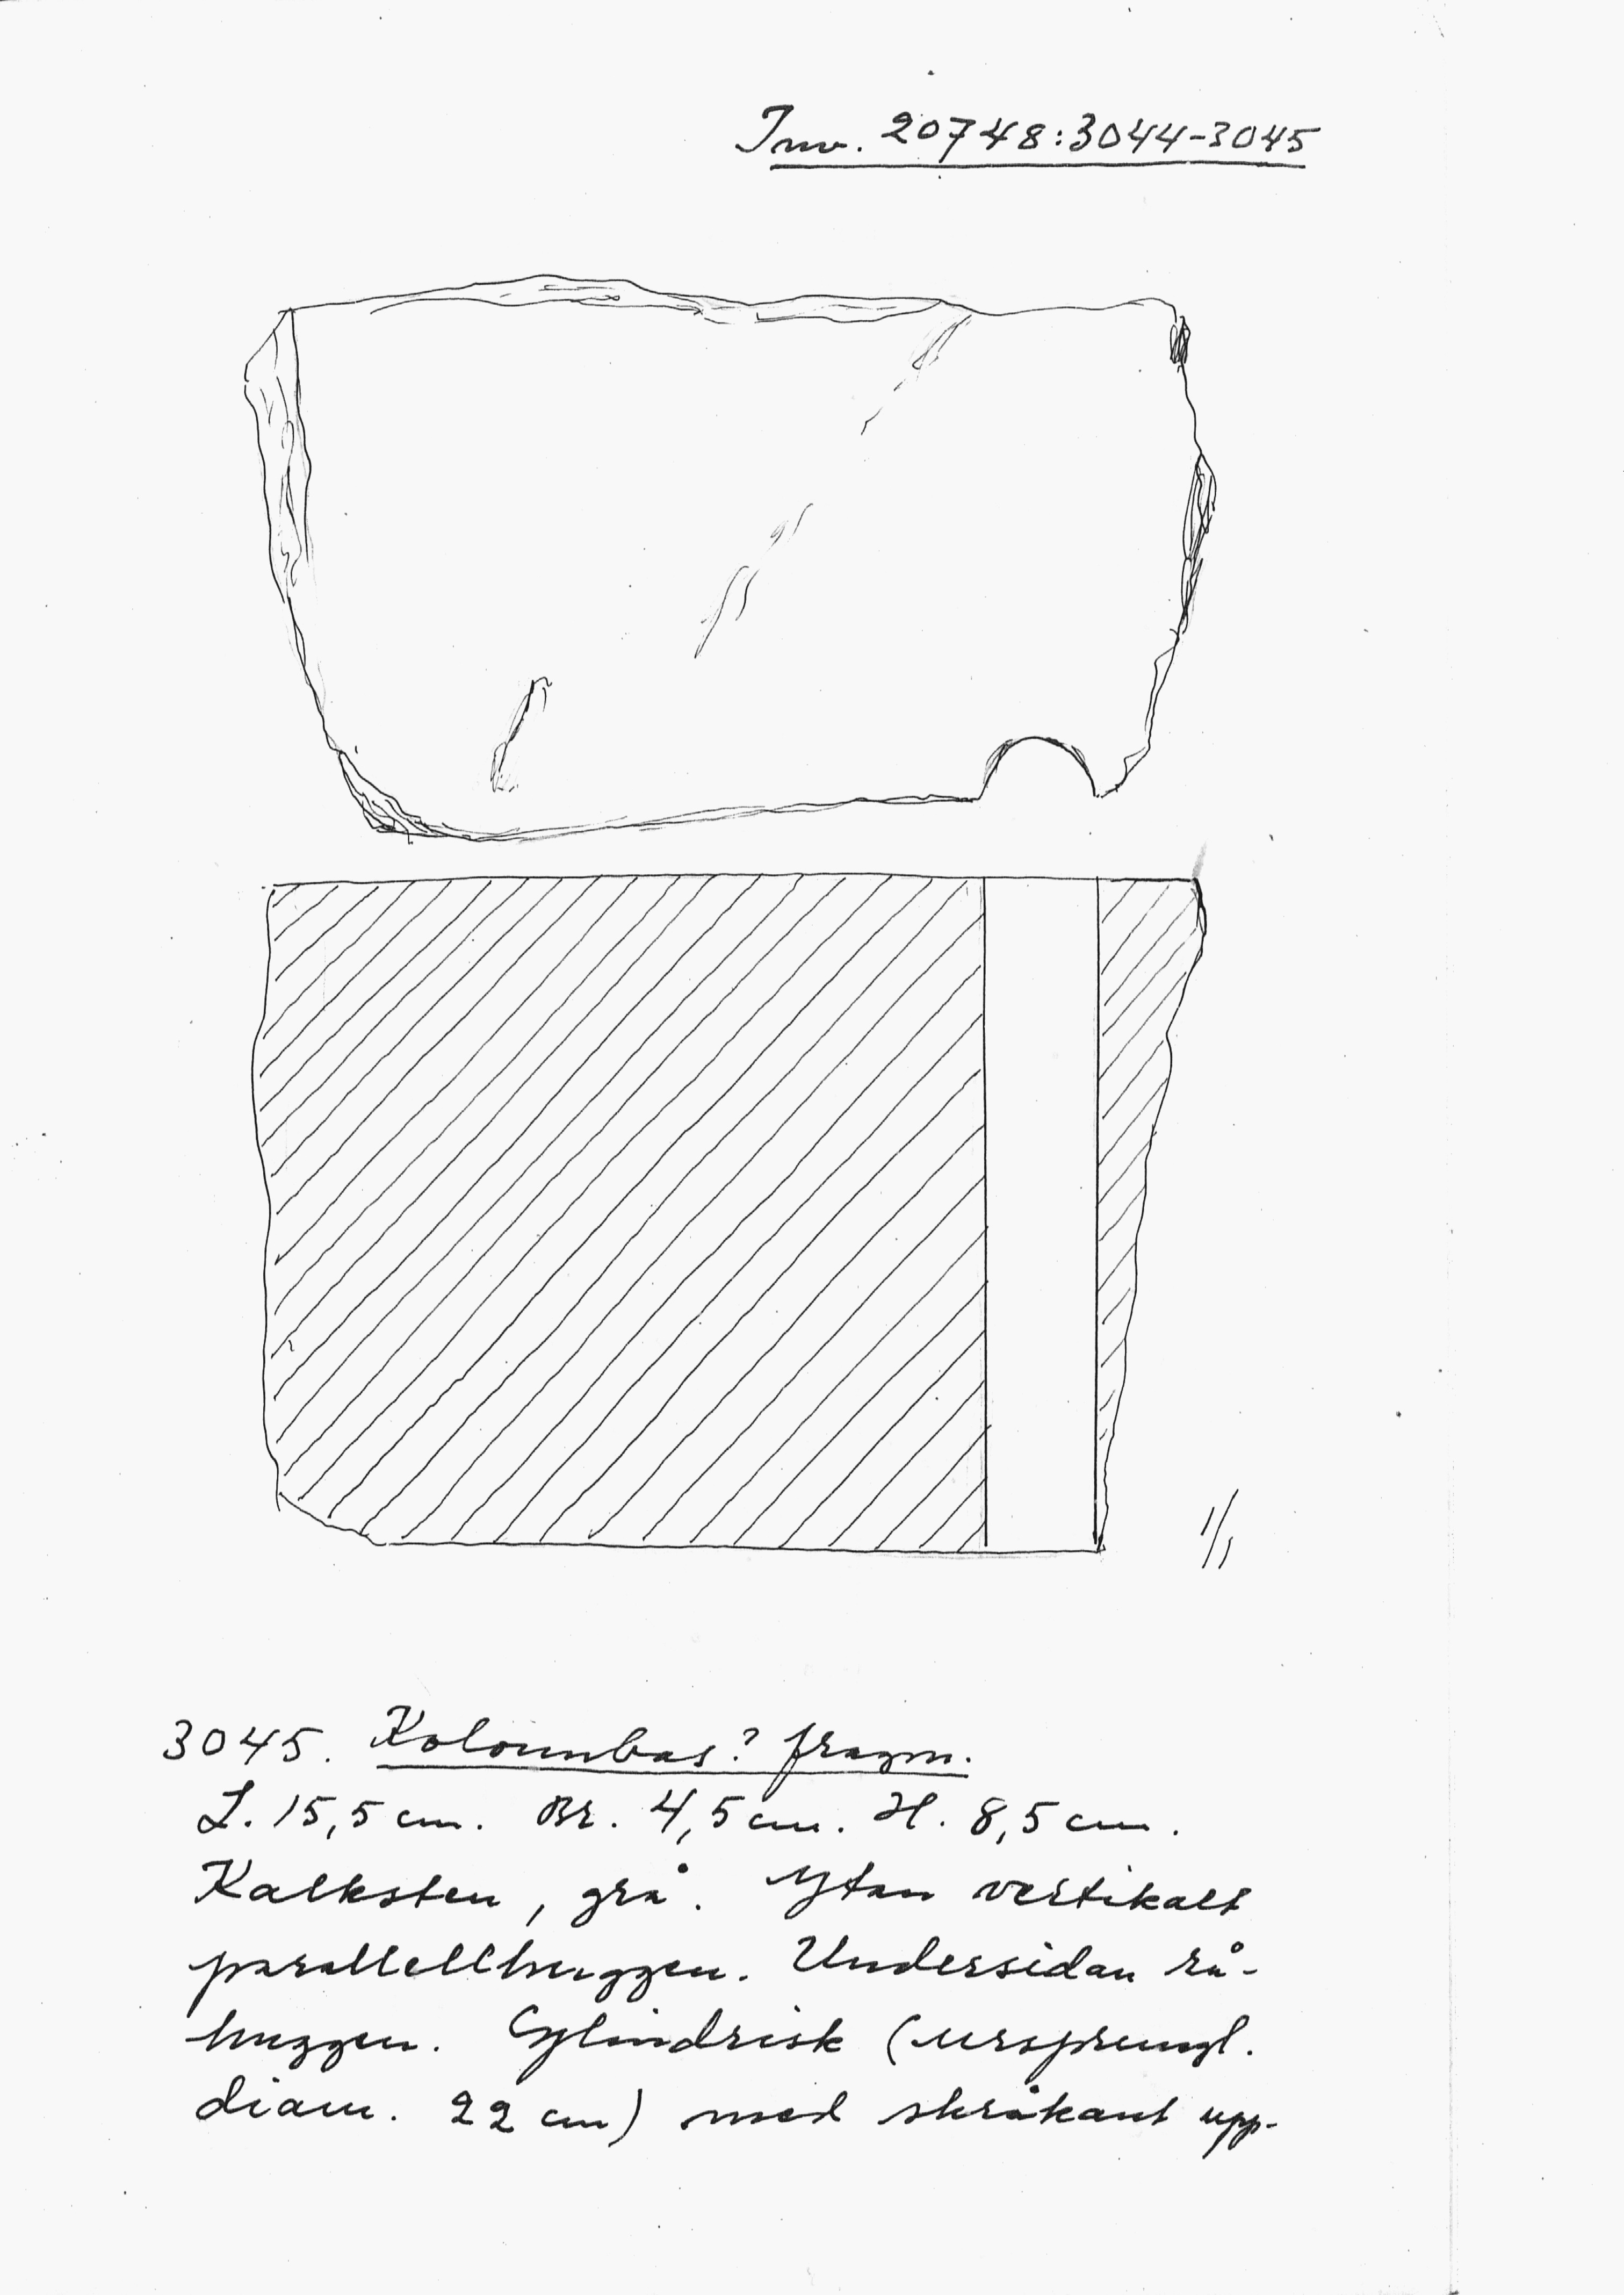 Inv. 20748:3044-3045
1/1
3045. Kolonnbas? fragm.
L. 15,5 cm. Br. 4,5 cm. H. 8,5 cm.
Kalksten, grå. Ytan vertikalt
parallellhuggen. Undersidan rå-
huggen. Cylindrisk (ursprungl.
diam. 22 cm) med skråkant upp-